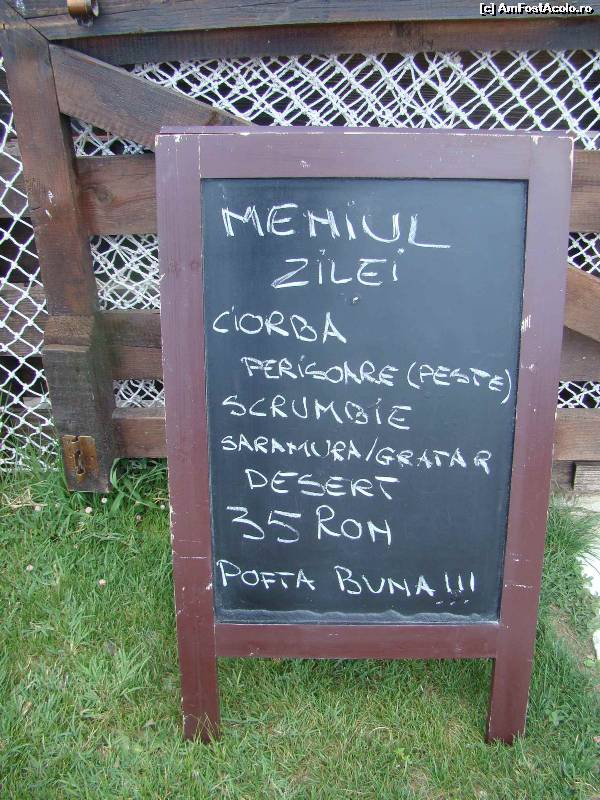 (c) AmFostAcolo.ro
MENIUL
ZILEI
CIORBA
PERISOARE (PESTE)
SCRUMBIE
SARAMURA/GRATAR
DESERT
35 RON
POFTA BUNA!!!